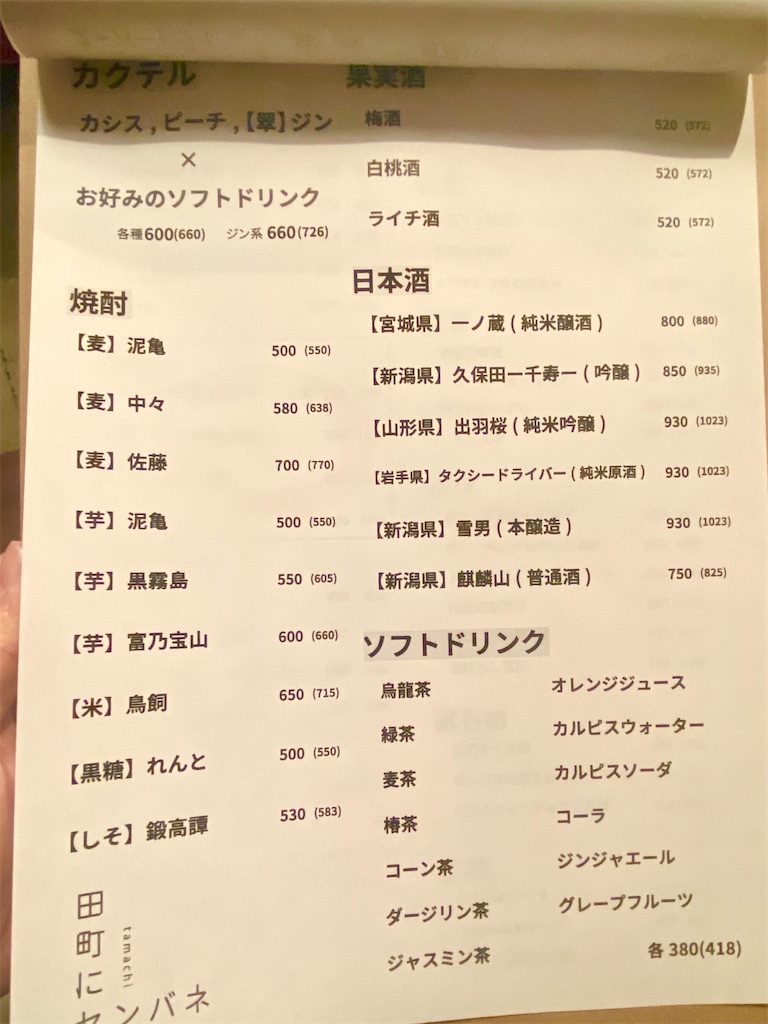 カクテル
カシス , ピーチ ,【翠】ジン
×
お好みのソフトドリンク
各種600(660) ジン系 660(726)
焼酎
【麦】泥亀 500 (550)
【麦】中々 580 (638)
【麦】佐藤 700 (770)
【芋】泥亀 500 (550)
【芋】黒霧島 550 (605)
【芋】富乃宝山 600 (660)
【米】鳥飼 650 (715)
【黒糖】れんと 500 (550)
【しそ】鍛高譚 530 (583)
田町に
tamachi
センバネ
果実酒
梅酒 520 (572)
白桃酒 520 (572)
ライチ酒 520 (572)
日本酒
【宮城県】一ノ蔵 ( 純米醸酒 ) 800 (880)
【新潟県】久保田一千寿一 ( 吟醸 ) 850 (935)
【山形県】出羽桜 ( 純米吟醸 ) 930 (1023)
【岩手県】タクシードライバー ( 純米原酒 ) 930 (1023)
【新潟県】雪男 ( 本醸造 ) 930 (1023)
【新潟県】麒麟山 ( 普通酒 ) 750 (825)
ソフトドリンク
烏龍茶
緑茶
麦茶
椿茶
コーン茶
ダージリン茶
ジャスミン茶
オレンジジュース
カルピスウォーター
カルピスソーダ
コーラ
ジンジャエール
グレープフルーツ
各 380(418)